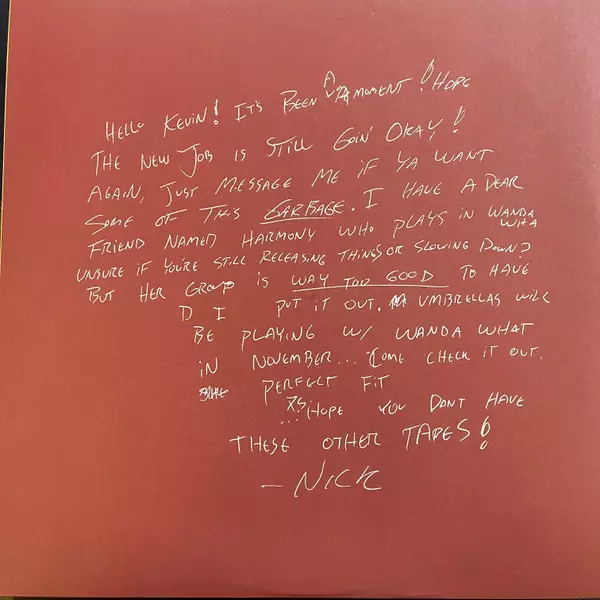 Hello Kevin! It's Been A moment! Hope
The New Job is still goin' okay!
Again, just message me if ya want
some of this garbage. I have a dear
friend named Harmony who plays in Wanda
What
Unsure if you're still releasing things or slowing down?
But her group is way too good to have
D I put it out. Umbrellas will
be playing w/ Wanda What
in November... Come check it out.
Perfect fit
PS
... Hope you dont have
these other tapes!
- Nick